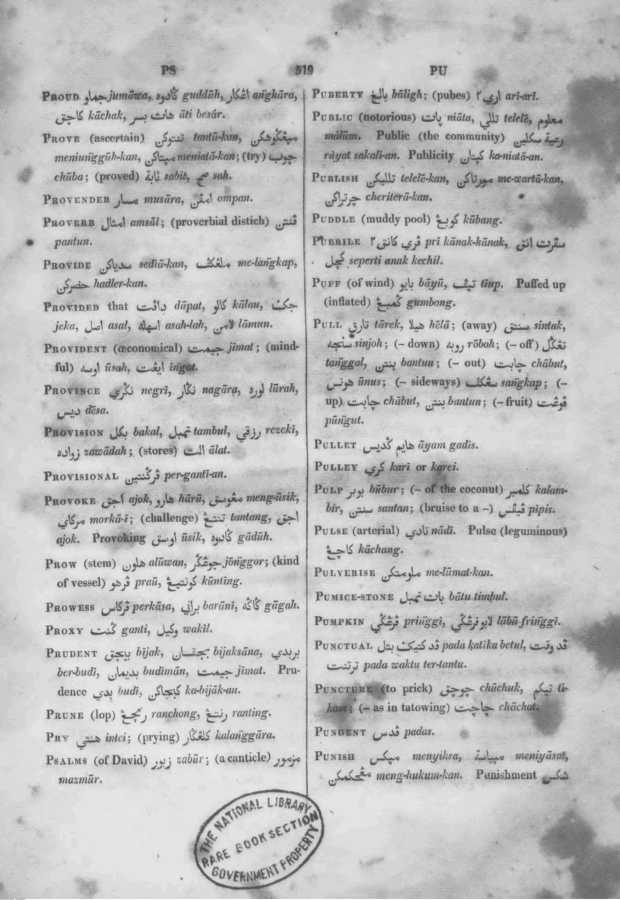 PS 519 PU
PROUD جماو jumāwa, گادوه guddūh, اڠكار ang̃hāra,
كاچق kāchak, هات بسر āti besár.
PROVE (ascertain) تنتوكن tantū-kan,
meniung̃gūh-kan, meniatā-kan; (try) چوب
chūba; (proved) ثابة sabit, صح sah.
PROVENDER musāra, امڤن ompan.
PROVERB امثال amsāl; (proverbial distich) ڤنتن
pantun.
PROVIDE sediā-kan, me-lang̃kap,
hadler-kan.
PROVIDED that داڤت dāpat, كالو kālau,
jeka, اصل asal, اسهله asah-lah, لامن lāmun.
PROVIDENT (œconomical) جيمت jimat; (mind-
ful) اوسه ūsah, ايڠت ing̃at.
PROVINCE نگري negri, نگار nagāra, لوره lūrah,
ديس dēsa.
PROVISION بكل bakal, تمبل tambul, رزقي rezeki,
زواده zawādah; (stores) الت ālat.
PROVISIONAL ڤرگنتين per-ganti-an.
PROVOKE اجق ajok, هارو hārū, مڠوسق meng-ūsik,
مركاي morkā-i; (challenge) تنتڠ tantang, اجق
ajok. Provoking اوسق ūsik, گادوه gādūh.
PROW (stem) هلون alūwan, جوڠگر jong̃gor; (kind
of vessel) ڤرهو praū, كونتيڠ kūnting.
PROWESS ڤركاس perkāsa, براني barāni, گاگه gāgah.
PROXY گنت ganti, وكيل wakil.
PRUDENT بيجق bijak, بيجقسان bijaksāna, بربدي
ber-budi, بديمان budimān, جيمت jimat. Pru-
dence بدي budi, كبيجاكن ka-bijāk-an.
PRUNE (lop) رنچڠ ranchong, رنتڠ ranting.
PRY هنتي intei; (prying) كلڠگار kalang̃gāra.
PSALMS (of David) زبور zabūr; (a canticle) مزمور
mazmūr.
PUBERTY بالغ bāligh; (pubes) اري٢ ari-ari.
PUBLIC (notorious) پات niāta, تللي telelē, معلوم
mālūm. Public (the community) رعية سكلين
rāyat sakali-an. Publicity كپتان ka-niatā-an.
PUBLISH تلليكن telelē-kan, مورتاكن me-wartā-kan,
چرتراكن cheriterā-kan.
PUDDLE (muddy pool) كوبڠ kūbang.
PUERILE ڤري كانق٢ pri kānak-kānak, سڤرت انق
كچل seperti anak kechil.
PUFF (of wind) بايو bāyū, تيڤ tiup. Puffed up
(inflated) گمبڠ gumbong.
PULL تارق tārek, هيلا hēlā; (away) سنتق sintak,
سنجه sinjoh; (– down) روبه rōboh; (– off) تڠگل
tang̃gal, بنتن bantun; (– out) چابت chābut,
هونس ūnus; (– sideways) سڠكڤ sang̃kap; (–
up) چابت chābut, بنتن bantun; (– fruit) ڤوڠت
pūng̃ut.
PULLET هايم گديس āyam gadis.
PULLEY كري kari or karei.
PULP بوبر būbur; (– of the coconut) كلمبر kalam-
bir, سنتن santan; (bruise to a –) ڤيڤس pipis.
PULSE (arterial) نادي nādi. Pulse (leguminous)
كاچڠ kāchang.
PULVERISE ملومتكن me-lūmat-kan.
PUMICE-STONE بات تمبل bātu timbul.
PUMPKIN ڤرڠگي pring̃gi, لابو ڤرڠگي lābū-fring̃gi.
PUNCTUAL ڤد كتيك بتل pada katika betul, ڤد وقت
ترتنت pada waktu ter-tantu.
PUNCTURE (to prick) چوچق chūchuk, تيكم ti-
kam; (– as in tatowing) چاچت chāchat.
PUNGENT ڤدس padas.
PUNISH ميكس menyiksa, مپياسة meniyāsat,
مڠحكمكن meng-hukum-kan. Punishment شكس
THE NATIONAL LIBRARY
RARE BOOK SECTION
GOVERNMENT PROPERTY